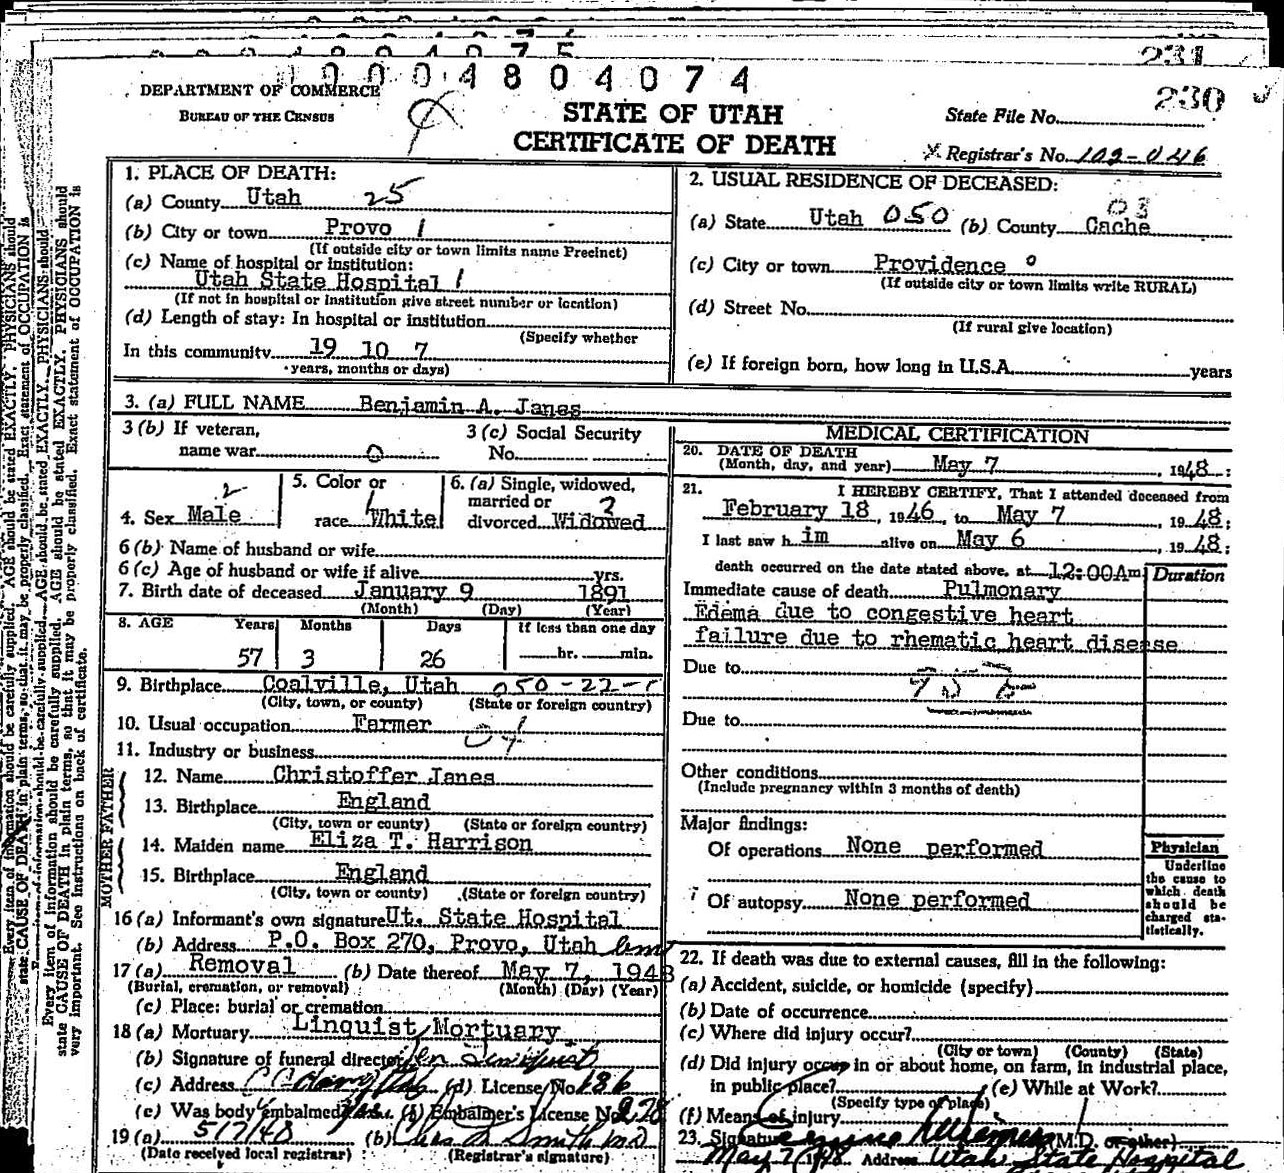 231
0004804074
DEPARTMENT OF COMMERCE
BUREAU OF THE CENSUS
STATE OF UTAH
CERTIFICATE OF DEATH
230
State File No.
Registrar's No. 102-046
1. PLACE OF DEATH:
(a) County Utah 25
(b) City or town Provo 1
(If outside city or town limits name Precinct)
(c) Name of hospital or institution:
Utah State Hospital 1
(If not in hospital or institution give street number or location)
(d) Length of stay: In hospital or institution
(Specify whether
In this community 19 10 7
years, months or days)
2. USUAL RESIDENCE OF DECEASED:
(a) State Utah 050 (b) County Cache 03
(c) City or town Providence 0
(If outside city or town limits write RURAL)
(d) Street No.
(If rural give location)
(e) If foreign born, how long in U.S.A. years
3. (a) FULL NAME Benjamin A. Janes
3 (b) If veteran, name war 0
3 (c) Social Security No.
4. Sex Male 2
5. Color or race White 1
6. (a) Single, widowed, married or divorced Widowed
6 (b) Name of husband or wife
6 (c) Age of husband or wife if alive yrs.
7. Birth date of deceased January 9 1891
(Month) (Day) (Year)
8. AGE Years Months Days If less than one day
57 3 26 hr. min.
9. Birthplace Coalville, Utah 050-22-1
(City, town, or county) (State or foreign country)
10. Usual occupation Farmer
11. Industry or business
FATHER
12. Name Christoffer Janes
13. Birthplace England
(City, town or county) (State or foreign country)
MOTHER
14. Maiden name Eliza T. Harrison
15. Birthplace England
(City, town or county) (State or foreign country)
16 (a) Informant's own signature Ut. State Hospital
(b) Address P.O. Box 270, Provo, Utah
17 (a) Removal (b) Date thereof May 7, 1948
(Burial, cremation, or removal) (Month) (Day) (Year)
(c) Place: burial or cremation
18 (a) Mortuary Linquist Mortuary
(b) Signature of funeral director
(c) Address (d) License No. 686
(e) Was body embalmed Yes (f) Embalmer's License No. 278
19 (a) 5/7/48 (b) Chas M Smith MD
(Date received local registrar) (Registrar's signature)
MEDICAL CERTIFICATION
20. DATE OF DEATH
(Month, day, and year) May 7, 1948;
21. I HEREBY CERTIFY, That I attended deceased from
February 18, 1946, to May 7, 1948;
I last saw him alive on May 6, 1948;
death occurred on the date stated above, at 12:00Am
Duration
Immediate cause of death Pulmonary
Edema due to congestive heart
failure due to rhematic heart disease
Due to
Due to
Other conditions
(Include pregnancy within 3 months of death)
Major findings:
Of operations None performed
Of autopsy None performed
Physician
Underline
the cause to
which death
should be
charged sta-
tistically.
22. If death was due to external causes, fill in the following:
(a) Accident, suicide, or homicide (specify)
(b) Date of occurrence
(c) Where did injury occur?
(City or town) (County) (State)
(d) Did injury occur in or about home, on farm, in industrial place,
in public place? (e) While at Work?
(Specify type of place)
(f) Means of injury
23. Signature (M.D. or other)
May 7, 1948 Address Utah State Hospital
Every item of information should be carefully supplied. AGE should be stated EXACTLY. PHYSICIANS should
state CAUSE OF DEATH in plain terms, so that it may be properly classified. Exact statement of OCCUPATION is
very important. See instructions on back of certificate.